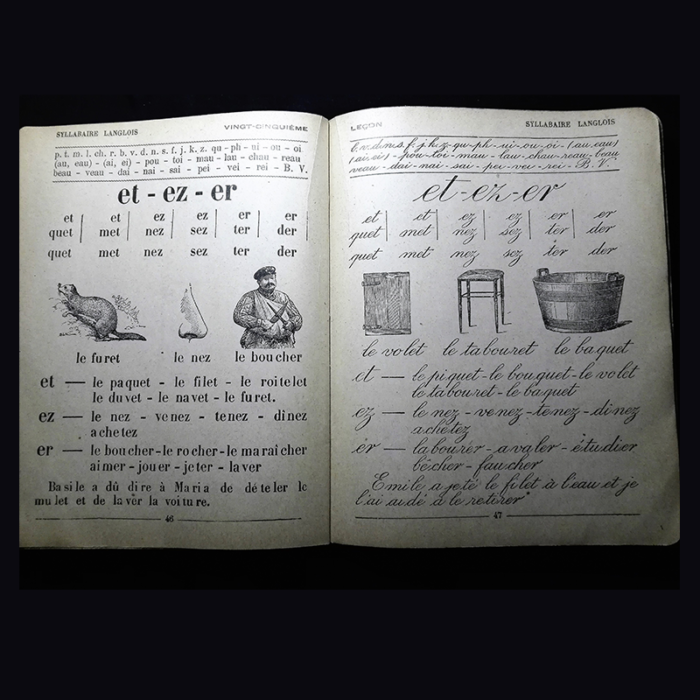 SYLLABAIRE LANGLOIS VINGT-CINQUIÈME
p. t. m. l. ch. r. b. v. d. n. s. f. j. k. z. qu - ph - ui - ou - oi
(au, eau) - (ai, ei) - pou - toi - mau - lau - chau - reau
beau - veau - dai - nai - sai - pei - vei - rei - B. V.
et - ez - er
et et ez ez er er
quet met nez sez ter der
quet met nez sez ter der
le furet le nez le boucher
et — le paquet - le filet - le roitelet
le duvet - le navet - le furet.
ez — le nez - venez - tenez - dinez
achetez
er — le boucher - le rocher - le maraîcher
aimer - jouer - jeter - laver
Basile a dû dire à Maria de dételer le
mulet et de laver la voiture.
46
LEÇON SYLLABAIRE LANGLOIS
v. d. n. s. f. j. k. z. qu - ph - ui - ou - oi - (au, eau)
(ai, ei) - pou - toi - mau - lau - chau - reau - beau
veau - dai - nai - sai - pei - vei - rei - B. V.
et - ez - er
et et ez ez er er
quet met nez sez ter der
quet met nez sez ter der
le volet le tabouret le baquet
et — le piquet - le bouquet - le volet
le tabouret - le baquet
ez — le nez - venez - tenez - dinez
achetez
er — labourer - avaler - étudier
bêcher - faucher
Emile a jeté le filet à l'eau et je
l'ai aidé à le retirer
47